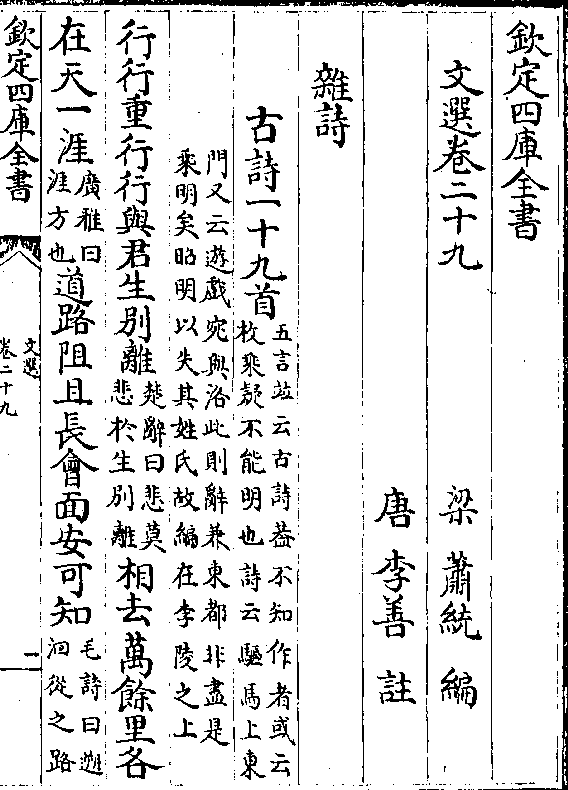 欽定四庫全書
文選卷二十九
梁 蕭統 編
唐 李善 註
雜詩
古詩一十九首
五言竝云古詩葢不知作者或云
枚乘疑不能明也詩云驅馬上東
門又云遊戲宛與洛此則辭兼東都非盡是
乘明矣昭明以失其姓氏故編在李陵之上
行行重行行與君生別離
楚辭曰悲莫
悲於生別離
相去萬餘里各
在天一涯
廣雅曰
涯方也
道路阻且長會面安可知
毛詩曰遡
洄從之路
欽定四庫全書
文選
卷二十九
一